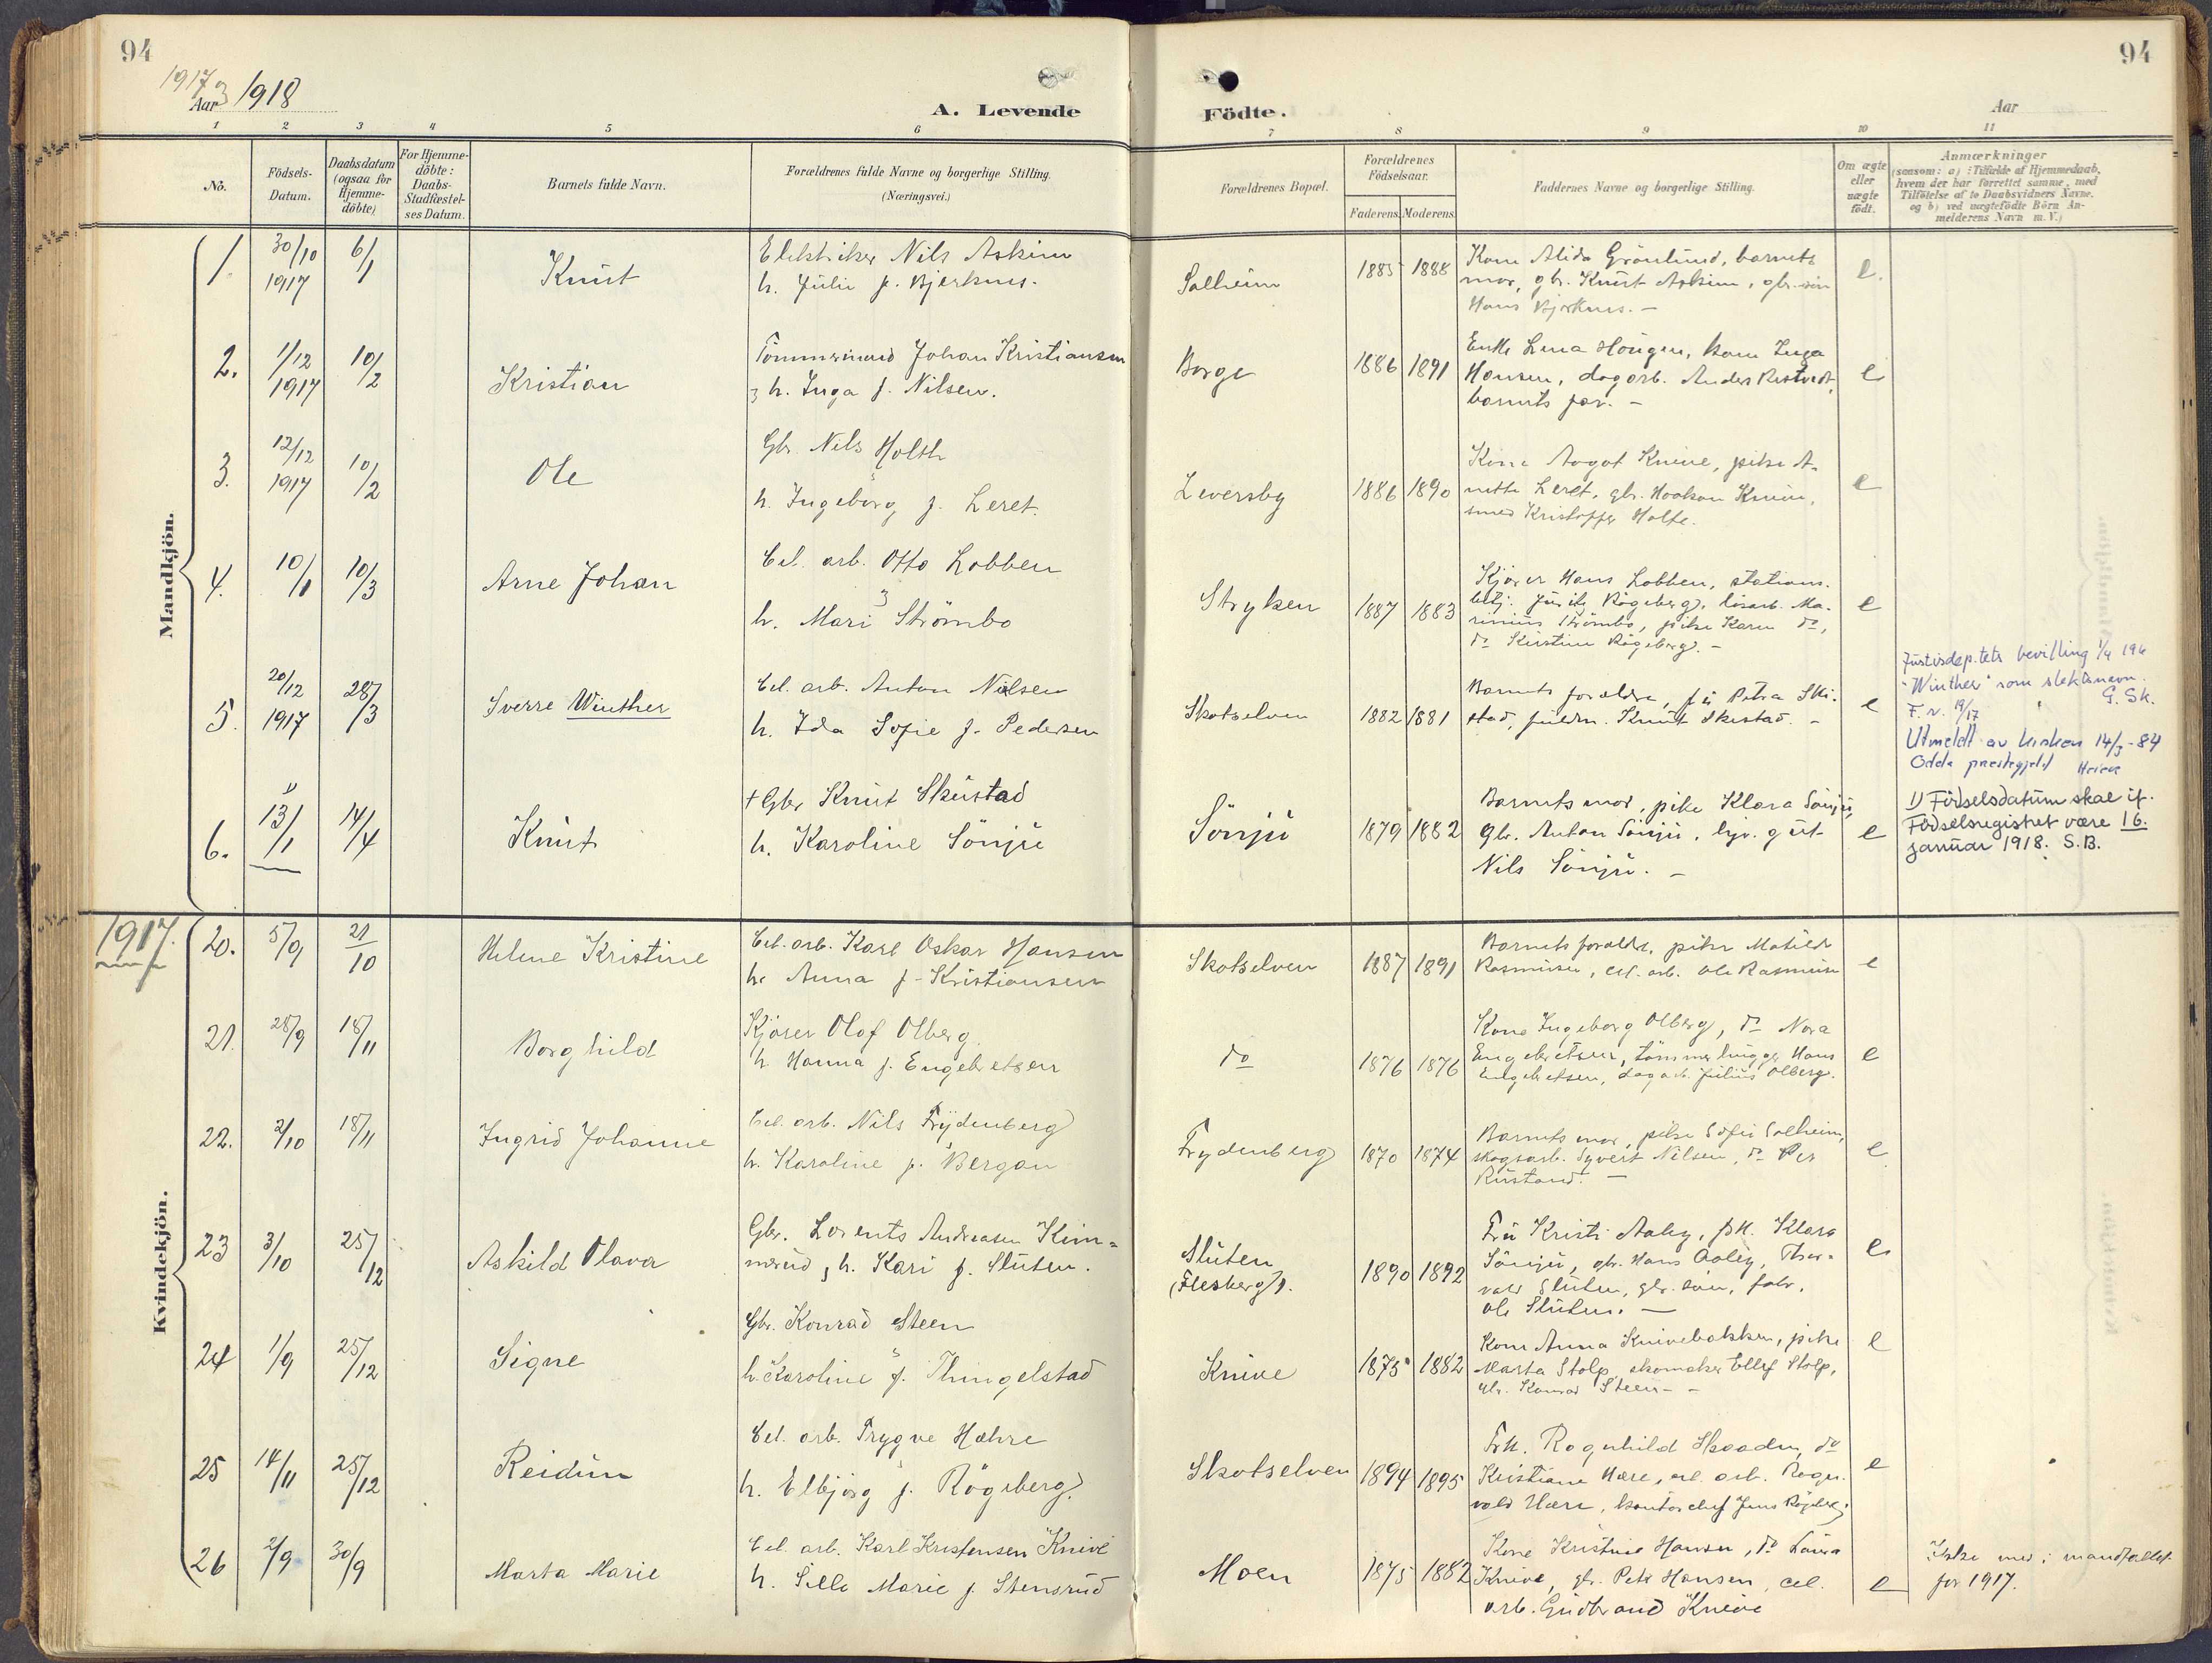 94
94
1917 3 1918
Aar
A. Levende
Födte.
Aar
1 2 3 4 5 6 7 8 9 10 11
No.
Födsels-
Datum.
Daabsdatum
(ogsaa for
Hjemme-
döbte)
For Hjemme-
döbte:
Daabs-
Stadfæstel-
ses Datum.
Barnets fulde Navn.
Forældrenes fulde Navne og borgerlige Stilling.
(Næringsvei.)
Forældrenes Bopæl.
Forældrenes
Födselsaar.
Faderens. Moderens.
Faddernes Navne og borgerlige Stilling.
Om ægte
eller
uægte
födt.
Anmærkninger
(saasom: a) i Tilfælde af Hjemmedaab,
hvem der har forrettet samme, med
Tilföielse af to Daabsvidners Navne.
og b) ved uægtefödte Börn An-
melderens Navn m.V.)
Mandkjön.
1. 30/10 1917 6/1 Knut
Elektriker Nils Askim
h. Julie f. Bjerknes.
Solheim 1885 1888
Kone Alida Grönlund, barnets
mor, gbr. Knut Askim, gbr. sön
Hans Bjerknes. –
e.
2. 1/12 1917 10/2 Kristian
Tömmermand Johan Kristiansen
3 h. Inga f. Nilsen.
Borge 1886 1891
Enke Lina Haugen, kone Inga
Hansen, dagarb. Anders
barnets far. –
e
3. 12/12 1917 10/2 Ole
Gbr. Nils Holth
h. Ingeborg f. Leret.
Leversby 1886 1890
Kone Aagot Knive, pike A-
nette Leret, gbr. Haakon Knive,
smed Kristoffer Holte.
e
4. 10/1 10/3 Arne Johan
Cel. arb. Otto Lobben
3
h. Mari Strömbo
Stryken 1887 1883
Kjörer Hans Lobben, stations-
betj. Rögeberg, lösarb. Ma-
rinius Strömbo, pike Karen do,
do Kirstine Rögeberg. –
e
5. 20/12 1917 28/3 Sverre Winther
Cel. arb. Anton Nilsen
h. Ida Sofie f. Pedersen
Skotselven 1882 1881
Barnets forældre, fru Petra Ski-
stad, fuldm. Knut Skistad. –
e
Justisdep.tets bevilling 1/4 196
"Winther" som slektsnavn.
G. Sk.
F. r. 19/17
Utmeldt av kirken 14/3-84
Odda prestegjeld
6. 1) 13/1 14/4 Knut
+ Gbr Knut Skuistad
h. Karoline Sönju
Sönju 1879 1882
Barnets mor, pike Klara Sönju,
Gbr. Anton Sönju, ligr. gut
Nils Sönju. –
e
1) Födselsdatum skal if.
Födselsregistret være 16.
januar 1918. S.B.
1917.
Kvindekjön.
20. 5/9 21/10 Helene Kristine
Cel. arb. Karl Oskar Hansen
h. Anna f. Kristiansen
Skotselven 1887 1891
Barnets forældre, pike Matilde
Rasmusen, cel. arb. Ole Rasmusen
e
21. 28/9 18/11 Borghild
Kjörer Olaf Olberg
h. Hanna f. Engebretsen
do 1876 1876
Kone Ingeborg Olberg, do Nora
Engebretsen, tömmerhugger Hans
Engebretsen, dagarb. Julius Olberg.
e
22. 2/10 18/11 Ingrid Johanne
Cel. arb. Nils Frydenberg
h. Karoline f. Bergan
Frydenberg 1870 1874
Barnets mor, pike Sofie Solheim,
skogsarb. Syvert Nilsen, do Per
Rustand. –
e
23 3/10 25/12 Askild Olava
Gbr. Lorents Andreasen Kim-
merud, h. Kari f. Sluten.
Sluten
(Flesberg). 1890 1892
Fru Kristi Aaby, frk. Klara
Sönju, gbr. Hans Aaby, Thor-
vald Sluten, gbr. sön, fabr.
Ole Sluten. –
e
24 1/9 25/12 Signe
Gbr. Konrad Steen
h. Karoline f. Thingelstad
Knive 1875 1882
Kone Anna Knivebakken, pike
Marta Stolp, skomaker Ellef Stolp,
gbr. Konrad Steen – –
e
25 14/11 25/12 Reidun
Cel. arb. Trygve Hæhre
h. Elbjörg f. Rögeberg.
Skotselven 1894 1895
Frk. Ragnhild Skaaden, do
Kristiane Hære, cel. arb. Ragn-
vald Hære, kontorchef Jens Rögeberg.
e
26 2/9 30/9 Marta Marie
Cel. arb. Karl Kristensen Knive
h. Sille Marie f. Stensrud
Moen 1875 1882
Kone Kristine Hansen, do Laura
Knive, gbr. Petr Hansen, cel.
arb. Gudbrand Knive
e
Ikke med i mandtallet
for 1917.